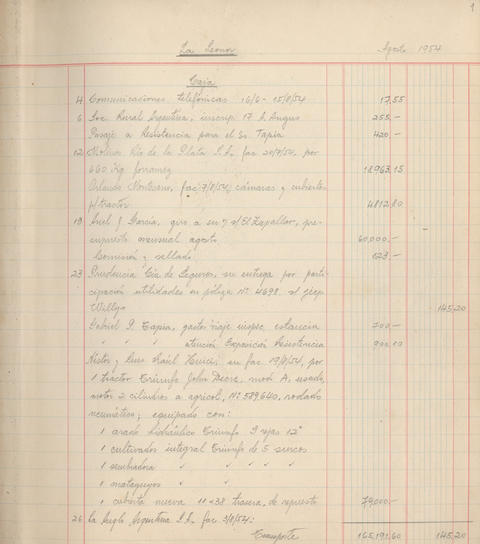 1
La Leonor Agosto 1954
Caja
4 Comunicaciones telefónicas 16/6 - 15/8/54 17,55
6 Soc. Rural Argentina, inscrip. 17 A. Angus 255.-
Pasaje a Resistencia para el Sr. Tapia 420.-
12 Molinos Río de la Plata S.A. fac 20/7/54, por
660 Kg forramez
Orlando Montesano, fac 7/8/54, cámaras y cubiertas
p/tractor 4812,80
19 Ariel J. García, giro a su/ s/El Zapallar, pre-
supuesto mensual agosto 60,000.-
Comisión y sellado 123.-
23 Prudencia Cía de Seguros, su entrega por parti-
cipación utilidades en póliza Nº 4698 s/ jeep
Willys 145,20
Gabriel P. Tapia, gastos viaje inspec. estancia 700.-
" " " atención Exposición Resistencia
Néstor y Luis Raúl su fac. 19/8/54, por
1 tractor Triunfo John Deere, mod A, usado,
motor 2 cilindros a agricol, Nº 589640, rodado
neumático; equipado con:
1 arado hidráulico Triunfo 3 rejas 12"
1 cultivador integral Triunfo de 5 surcos
1 sembradora " " " "
1 matayuyos "
1 cubierta nueva 11 x 38 trasera, de repuesto 79,000.-
26 La Anglo Argentina S.A. fac 3/8/54:
Transporte 165,191.60 145,20